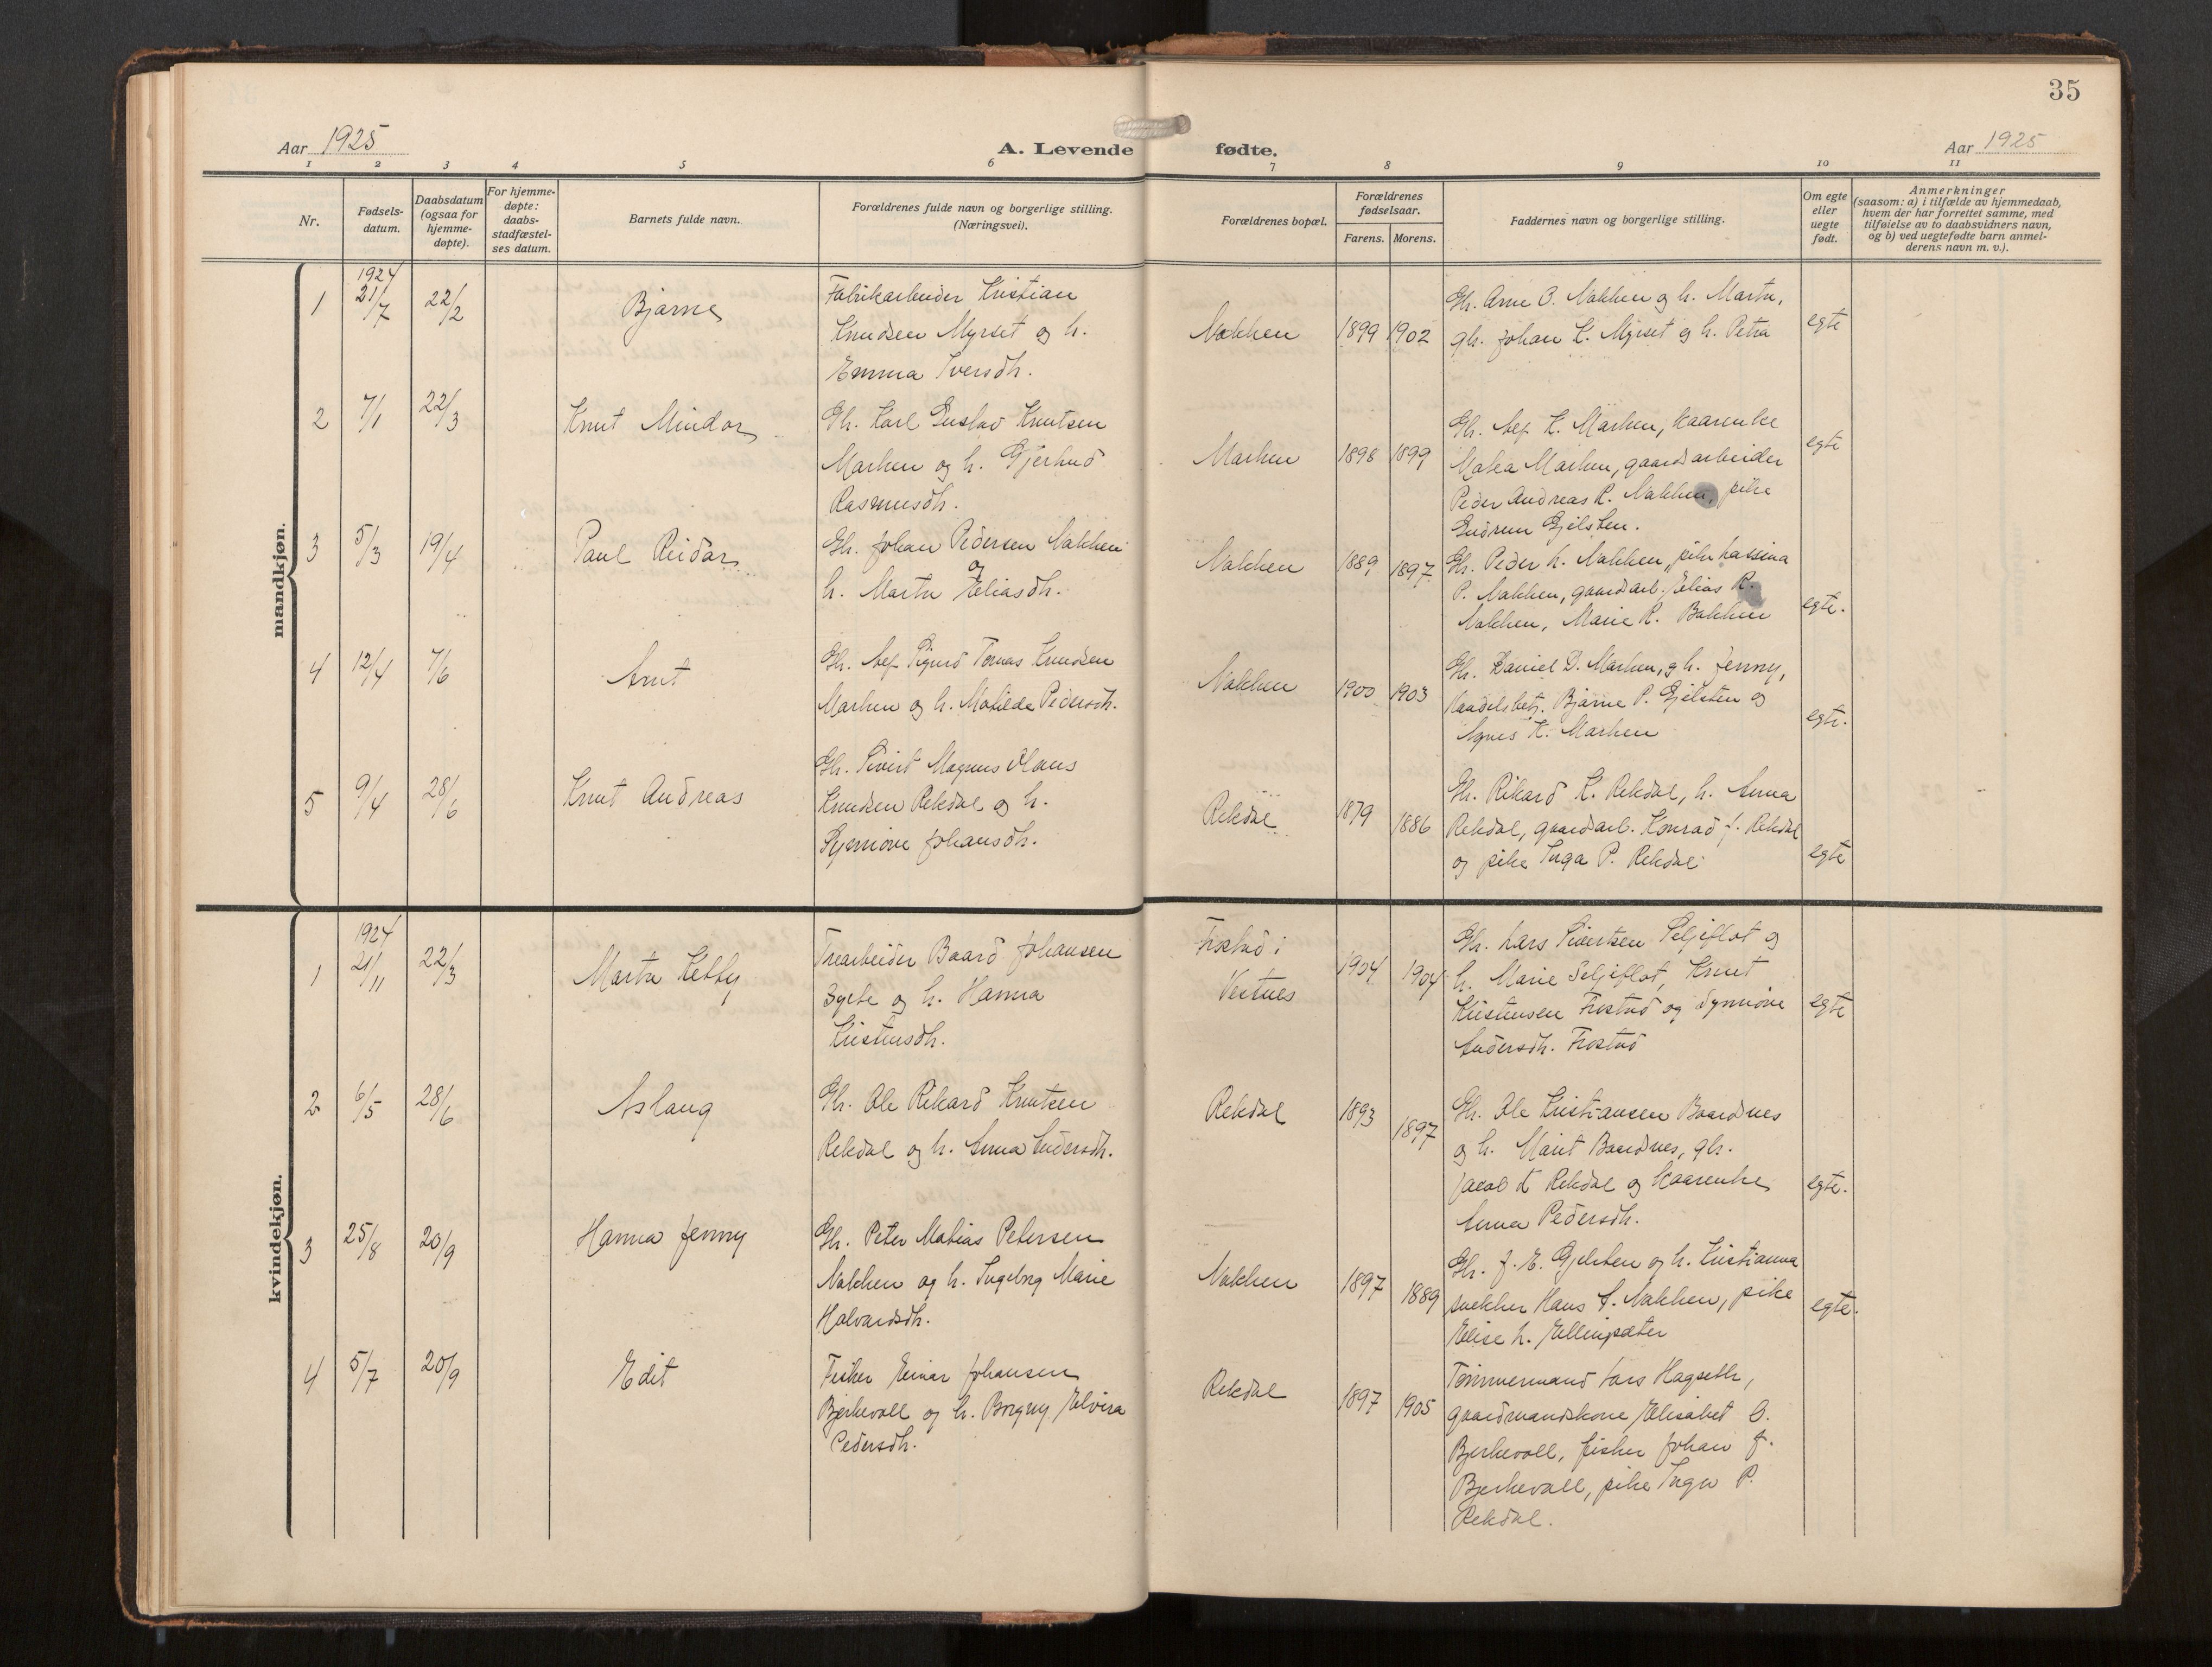 35
Aar 1925
A. Levende fødte.
Aar 1925
1 2 3 4 5 6 7 8 9 10 11
Nr.
Fødsels-
datum.
Daabsdatum
(ogsaa for
hjemme-
døpte).
For hjemme-
døpte:
daabs-
stadfæstel-
ses datum.
Barnets fulde navn.
Forældrenes fulde navn og borgerlige stilling.
(Næringsvei).
Forældrenes bopæl.
Forældrenes
fødselsaar.
Farens. Morens.
Faddernes navn og borgerlige stilling.
Om egte
eller
uegte
født.
Anmerkninger
(saasom: a) i tilfælde av hjemmedaab,
hvem der har forrettet samme, med
tilføielse av to daabsvidners navn,
og b) ved uegtefødte barn anmel-
derens navn m. v.).
mandkjøn.
1
1924
21/7
22/2
Bjarne
Fabrikarbeider Kristian
Knudsen Myrset og h.
Emma Iversdh.
Nakken
1899 1902
Gh. Arne O. Nakken og h. Marta,
gh. Johan K. Myrset og h. Petra
egte
2
7/1
22/3
Knut Mindor
Gh. Karl Gustav Knutsen
Marken og h. Gjertrud
Rasmusdh.
Marken
1898 1899
Gh. Alf K. Marken, kaarenke
Marken, gaardsarbeider
Peder Andreas R. Nakken, pike
Gudrun Gjelsten.
egte
3
5/3
19/4
Paul Reidar
Gh. Johan Pedersen Nakken
og
h. Marta Eliasdh.
Nakken
1889 1897
Gh. Peder L. Nakken, pike Lassina
P. Nakken, gaardarb. Elias R.
Nakken, Marie R. Bakken
egte.
4
12/4
7/6
Arnt
Gh. Alf Sigurd Tomas Knudsen
Marken og h. Matilde Pedersdh.
Nakken
1900 1903
Gh. Daniel D. Marken, g h. Jenny,
Handelsbetj. Bjarne P. Gjelsten og
Agnes K. Marken
egte.
5
9/4
28/6
Knut Andreas
Gh. Sivert Magnus Olaus
Knudsen Rekdal og h.
Synnøve Johansdh.
Rekdal
1879 1886
Gh. Rikard K. Rekdal, h. Anna
Rekdal, gaardsarb. Konrad J. Rekdal
og pike Inga P. Rekdal
egte
kvindekjøn.
1
1924
21/11
22/3
Marta Ketty
Trearbeider Baard Johansen
og h. Hanna
Kristensdh.
Frostad i
Vestnes
1904 1904
Gh. Lars Sivertsen Seljeflot og
h. Marie Seljeflot, Knut
Kristensen Frostad og Synnøve
Andersdh. Frostad
egte
2
6/5
28/6
Aslaug
Gh. Ole Rikard Knutsen
Rekdal og h. Anna Andersdh.
Rekdal
1893 1897
Gh. Ole Kristiansen Baardsnes
og h. Marit Baardsnes, gh.
Jacob K Rekdal og kaarenke
Anna Pedersdh.
egte.
3
25/8
20/9
Hanna Jenny
Gh. Peter Matias Petersen
Nakken og h. Ingeborg Marie
Halvardsdh.
Nakken
1897 1889
Gh. J. E. Gjelsten og h. Kristianna
snekker Hans A. Nakken, pike
Elise L. Ellingsæter
egte.
4
5/7
20/9
Edit
Fisker Einar Johansen
Bjerkevoll og h. Borgny Elvira
Pedersdh.
Rekdal
1897 1905
Tømmermand Lars Hagseth,
gaardmandskone Elisabet O.
Bjerkevoll, fisker Johan J.
Bjerkevoll, pike Inga P.
Rekdal.